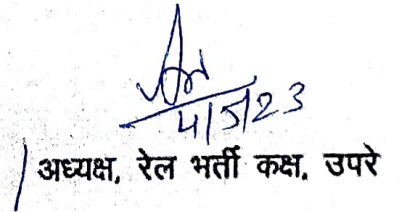 4/5/23
अध्यक्ष, रेल भर्ती कक्ष, उपरे